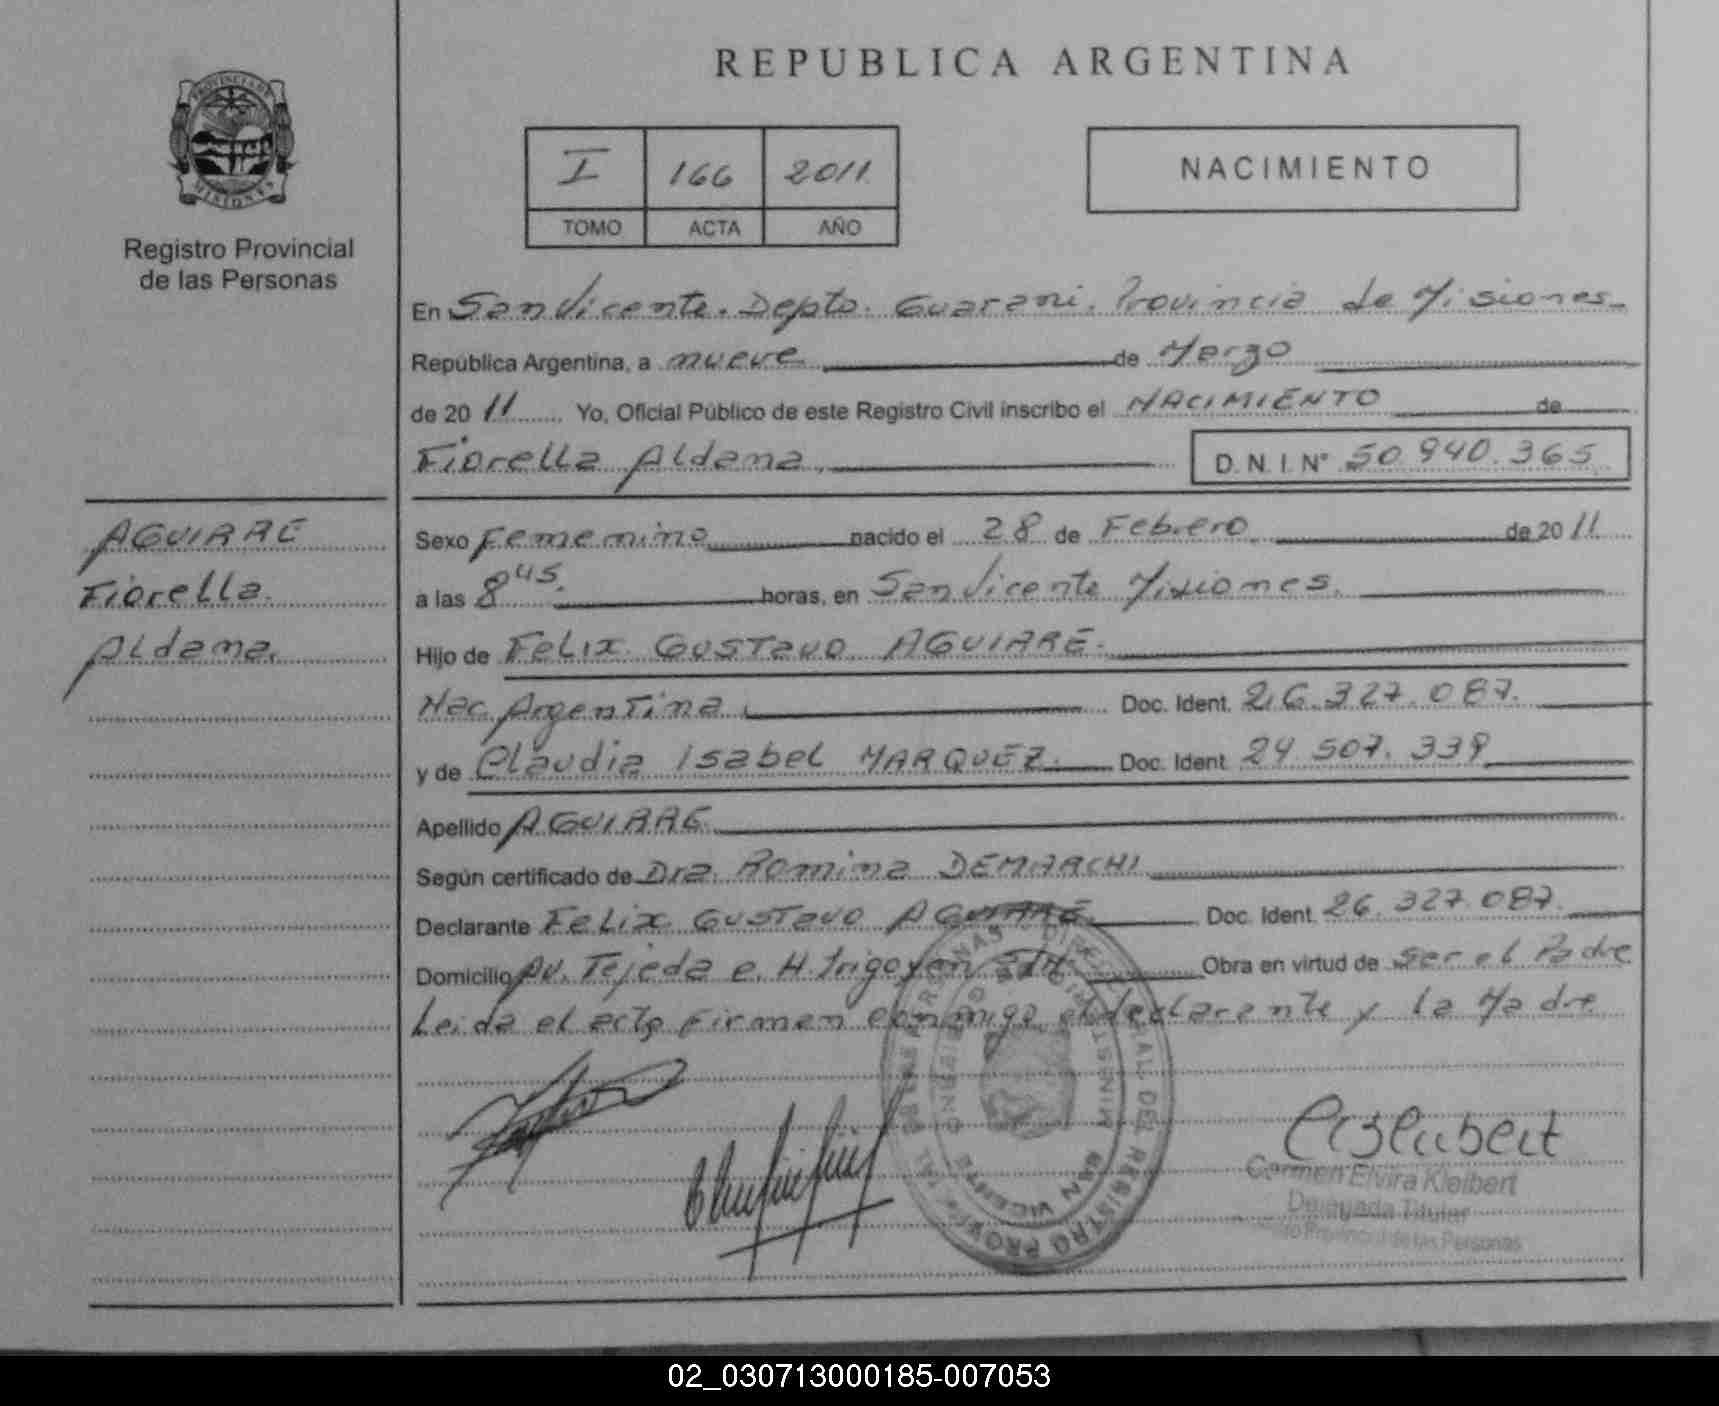 REPUBLICA ARGENTINA
PROVINCIA DE
MISIONES
Registro Provincial
de las Personas
I 166 2011
TOMO ACTA AÑO
NACIMIENTO
En San Vicente. Depto. Guarani. Provincia de Misiones
República Argentina, a nueve de Marzo
de 20 11 Yo, Oficial Público de este Registro Civil inscribo el NACIMIENTO de
Fiorella Aldana D. N. I. N° 50.940.365
AGUIRRE
Fiorella
Aldana
Sexo Femenino nacido el 28 de Febrero de 20 11
a las 8 45 horas, en San Vicente Misiones
Hijo de Felix GUSTavo AGUIRRE
Nac Argentina Doc. Ident. 26.327.087
y de Claudia Isabel MARQUEZ Doc. Ident. 24.507.339
Apellido AGUIRRE
Según certificado de Dra. Romina DEMARCHI
Declarante Felix GUSTavo AGUIRRE Doc. Ident. 26.327.087
Domicilio Av. Tejeda e H. Irigoyen Obra en virtud de ser el Padre
Leida el acta firman conmigo el declarante y la Madre
SAN VICENTE
Carmen Elvira Kleibert
Delegada Titular
Provincial de las Personas
02_030713000185-007053